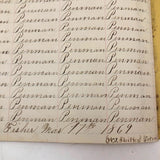 Penman Penman Penman
Penman Penman Penman
Penman Penman Penman
Penman Penman Penman
Penman Penman Penman
Penman Penman Penman
Penman Penman Penman
Penman Penman Penman
Penman Penman Penman
Fisher Mar 17th 1869